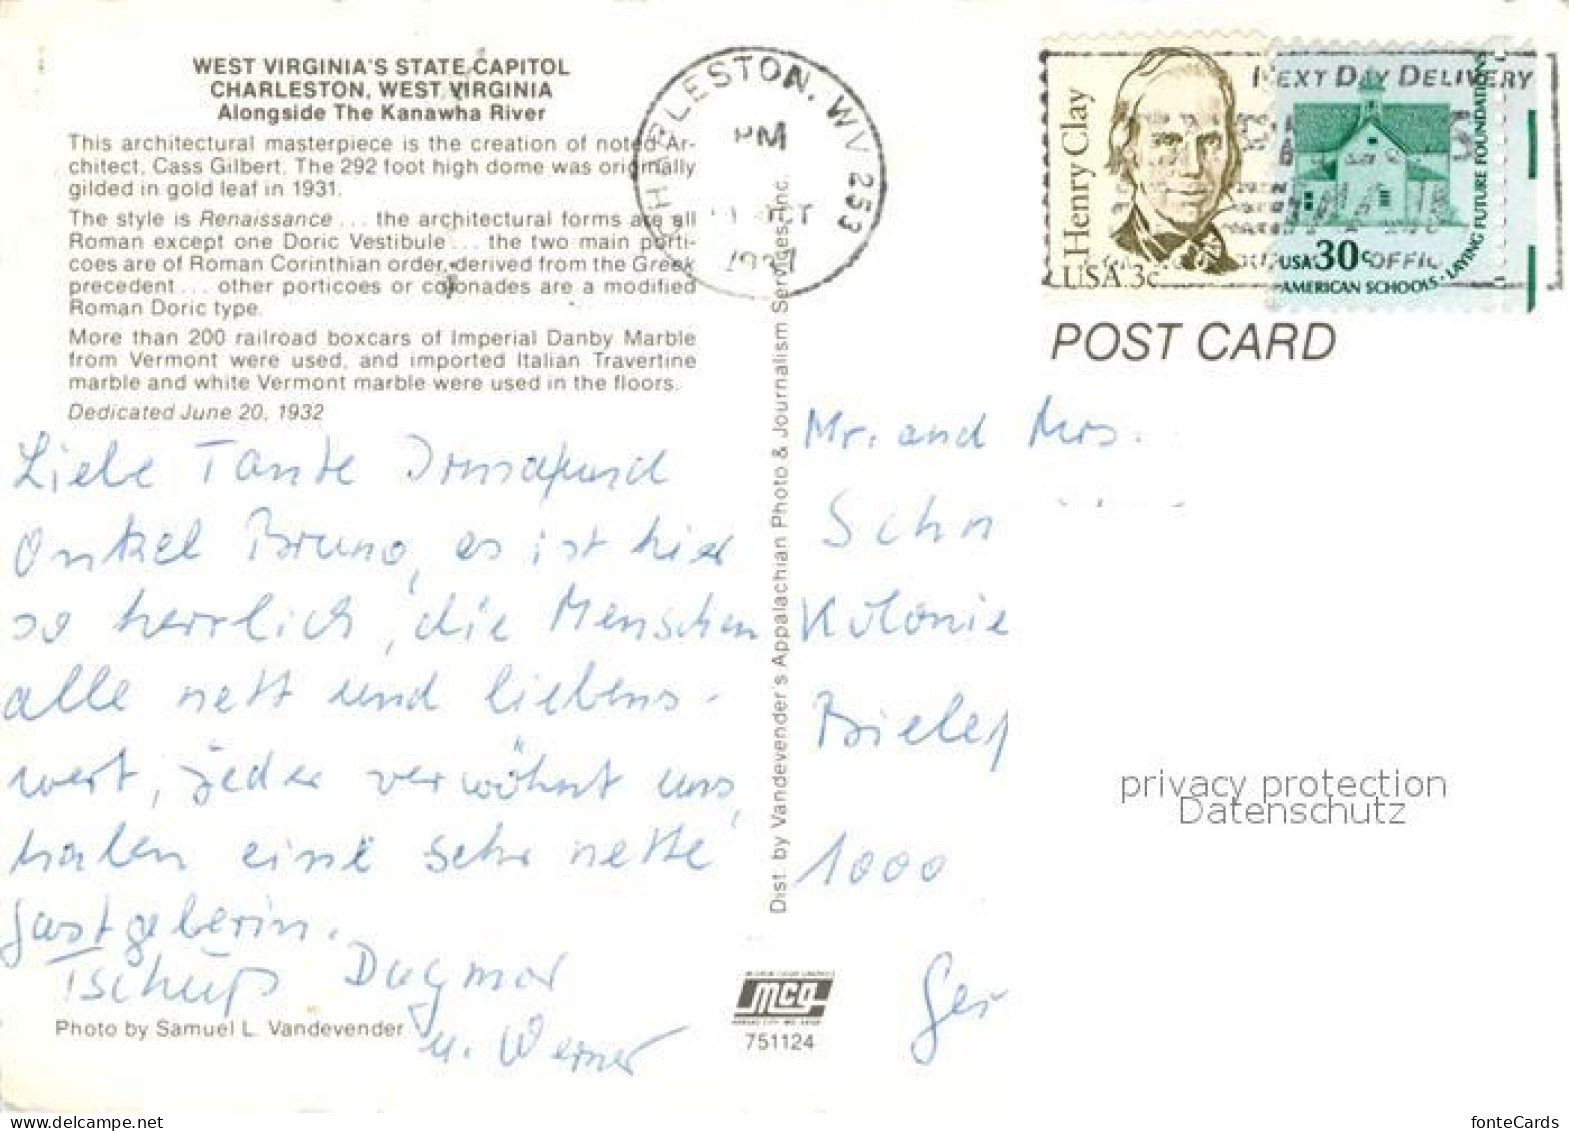 WEST VIRGINIA'S STATE CAPITOL
CHARLESTON, WEST VIRGINIA
Alongside The Kanawha River
This architectural masterpiece is the creation of noted Ar-
chitect, Cass Gilbert. The 292 foot high dome was originally
gilded in gold leaf in 1931.
The style is Renaissance ... the architectural forms are all
Roman except one Doric Vestibule ... the two main porti-
coes are of Roman Corinthian order, derived from the Greek
precedent ... other porticoes or colonades are a modified
Roman Doric type.
More than 200 railroad boxcars of Imperial Danby Marble
from Vermont were used, and imported Italian Travertine
marble and white Vermont marble were used in the floors.
Dedicated June 20, 1932
Liebe Tante Irmaund
Onkel Bruno, es ist hier
so herrlich, die Menschen
alle nett und liebens-
wert, jeder verwöhnt uns,
haben eine sehr nette
Gastgeberin.
Tschüß Dagmar
u. Werner
Photo by Samuel L. Vandevender
Dist. by Vandevender's Appalachian Photo & Journalism Services, Inc.
mcg
751124
RLESTON, WV 253
PM
OCT
NEXT DAY DELIVERY
Henry Clay
USA 3c
USA 30c
AMERICAN SCHOOLS · LAYING FUTURE FOUNDATIONS
OFFIC
POST CARD
Mr. and Mrs.
Schn
Kolonie
Bielef
1000
Ger
privacy protection
Datenschutz
www.ansichtskartenversand.com
fonteCards